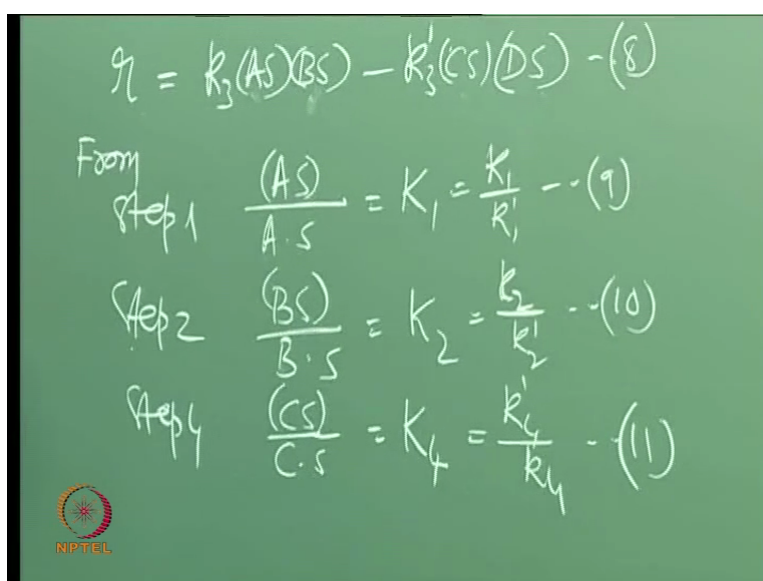 r = k₃(AS)(BS) - k₃'(CS)(DS) -(8)
From
Step 1 (AS)/A·S = K₁ = k₁/k₁' --(9)
Step 2 (BS)/B·S = K₂ = k₂/k₂' --(10)
Step 4 (CS)/C·S = K₄ = k₄'/k₄ --(11)
NPTEL